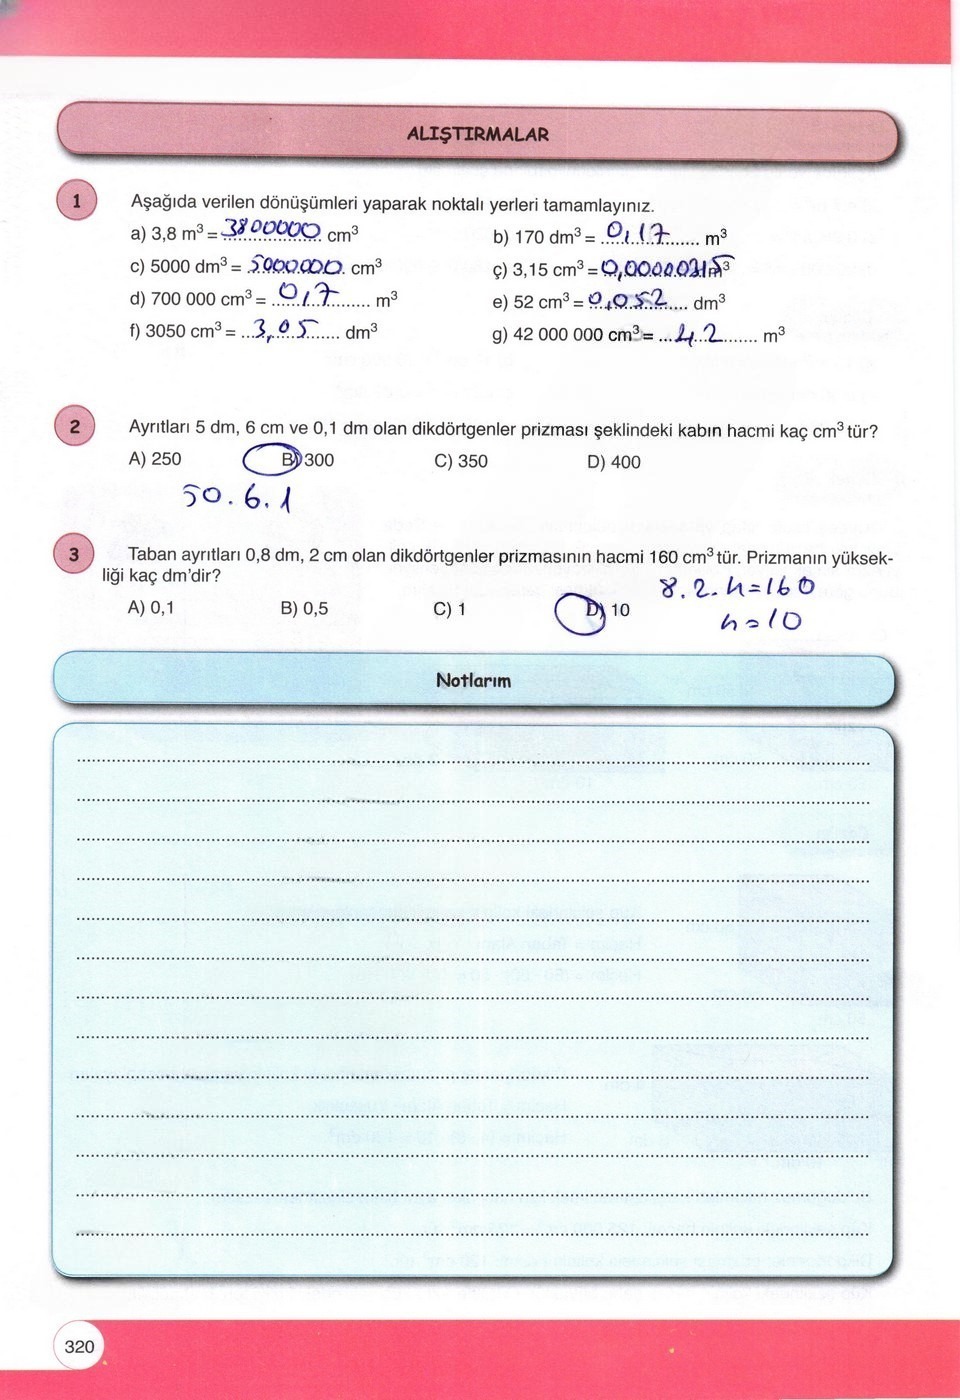 ALIŞTIRMALAR
1 Aşağıda verilen dönüşümleri yaparak noktalı yerleri tamamlayınız.
a) 3,8 m³ = 3800000 cm³
b) 170 dm³ = 0,17 m³
c) 5000 dm³ = 5000000 cm³
ç) 3,15 cm³ = 0,00000315 m³
d) 700 000 cm³ = 0,7 m³
e) 52 cm³ = 0,052 dm³
f) 3050 cm³ = 3,05 dm³
g) 42 000 000 cm³ = 42 m³
2 Ayrıtları 5 dm, 6 cm ve 0,1 dm olan dikdörtgenler prizması şeklindeki kabın hacmi kaç cm³ tür?
A) 250 B) 300 C) 350 D) 400
50.6.1
3 Taban ayrıtları 0,8 dm, 2 cm olan dikdörtgenler prizmasının hacmi 160 cm³ tür. Prizmanın yüksek-
liği kaç dm'dir?
8.2.h=160
A) 0,1 B) 0,5 C) 1 D) 10
h=10
Notlarım
320